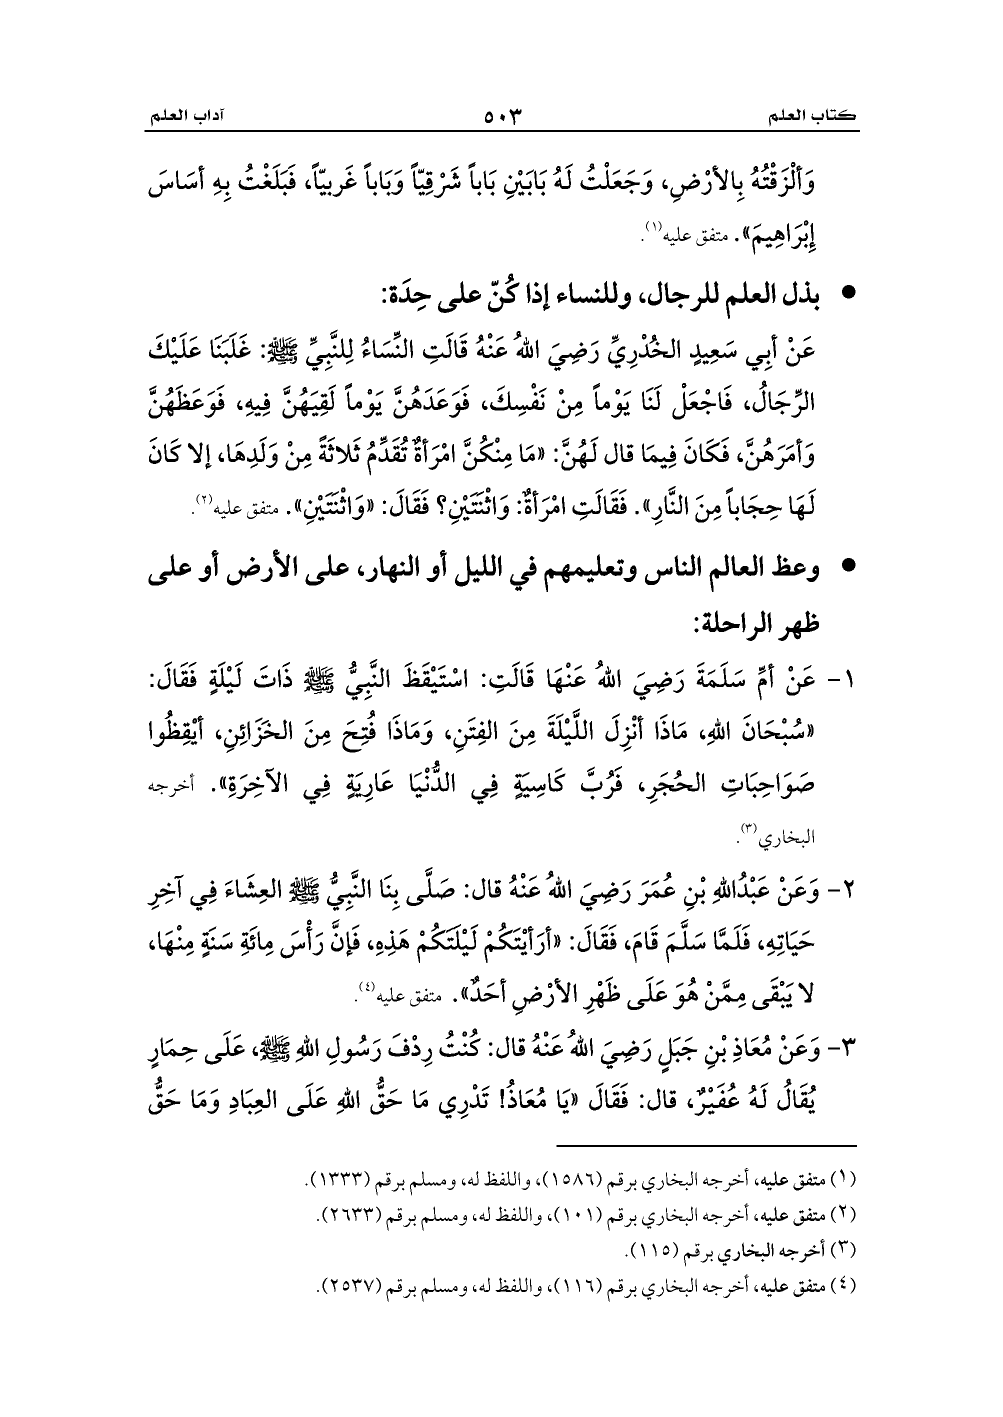 كتاب العلم ٥٠٣ آداب العلم
وَأَلْزَقْتُهُ بِالأرْضِ، وَجَعَلْتُ لَهُ بَابَيْنِ بَاباً شَرْقِيّاً وَبَاباً غَرِبيّاً، فَبَلَغْتُ بِهِ أسَاسَ
إِبْرَاهِيمَ». متفق عليه(١).
● بذل العلم للرجال، وللنساء إذا كُنّ على حِدَة:
عَنْ أبِي سَعِيدٍ الخُدْرِيِّ رَضِيَ اللهُ عَنْهُ قَالَتِ النِّسَاءُ لِلنَّبِيِّ ﷺ: غَلَبَنَا عَلَيْكَ
الرِّجَالُ، فَاجْعَلْ لَنَا يَوْماً مِنْ نَفْسِكَ، فَوَعَدَهُنَّ يَوْماً لَقِيَهُنَّ فِيهِ، فَوَعَظَهُنَّ
وَأمَرَهُنَّ، فَكَانَ فِيمَا قال لَهُنَّ: «مَا مِنْكُنَّ امْرَأةٌ تُقَدِّمُ ثَلاثَةً مِنْ وَلَدِهَا، إلا كَانَ
لَهَا حِجَاباً مِنَ النَّارِ». فَقَالَتِ امْرَأةٌ: وَاثْنَتَيْنِ؟ فَقَالَ: «وَاثْنَتَيْنِ». متفق عليه(٢).
● وعظ العالم الناس وتعليمهم في الليل أو النهار، على الأرض أو على
ظهر الراحلة:
١- عَنْ أمِّ سَلَمَةَ رَضِيَ اللهُ عَنْهَا قَالَتِ: اسْتَيْقَظَ النَّبِيُّ ﷺ ذَاتَ لَيْلَةٍ فَقَالَ:
«سُبْحَانَ اللهِ، مَاذَا أنْزِلَ اللَّيْلَةَ مِنَ الفِتَنِ، وَمَاذَا فُتِحَ مِنَ الخَزَائِنِ، أيْقِظُوا
صَوَاحِبَاتِ الحُجَرِ، فَرُبَّ كَاسِيَةٍ فِي الدُّنْيَا عَارِيَةٍ فِي الآخِرَةِ». أخرجه
البخاري(٣).
٢- وَعَنْ عَبْدُاللهِ بْنِ عُمَرَ رَضِيَ اللهُ عَنْهُ قال: صَلَّى بِنَا النَّبِيُّ ﷺ العِشَاءَ فِي آخِرِ
حَيَاتِهِ، فَلَمَّا سَلَّمَ قَامَ، فَقَالَ: «أرَأيْتَكُمْ لَيْلَتَكُمْ هَذِهِ، فَإنَّ رَأْسَ مِائَةِ سَنَةٍ مِنْهَا،
لا يَبْقَى مِمَّنْ هُوَ عَلَى ظَهْرِ الأرْضِ أحَدٌ». متفق عليه(٤).
٣- وَعَنْ مُعَاذِ بْنِ جَبَلٍ رَضِيَ اللهُ عَنْهُ قال: كُنْتُ رِدْفَ رَسُولِ اللهِ ﷺ، عَلَى حِمَارٍ
يُقَالُ لَهُ عُفَيْرٌ، قال: فَقَالَ «يَا مُعَاذُ! تَدْرِي مَا حَقُّ اللهِ عَلَى العِبَادِ وَمَا حَقُّ
(١) متفق عليه، أخرجه البخاري برقم (١٥٨٦)، واللفظ له، ومسلم برقم (١٣٣٣).
(٢) متفق عليه، أخرجه البخاري برقم (١٠١)، واللفظ له، ومسلم برقم (٢٦٣٣).
(٣) أخرجه البخاري برقم (١١٥).
(٤) متفق عليه، أخرجه البخاري برقم (١١٦)، واللفظ له، ومسلم برقم (٢٥٣٧).